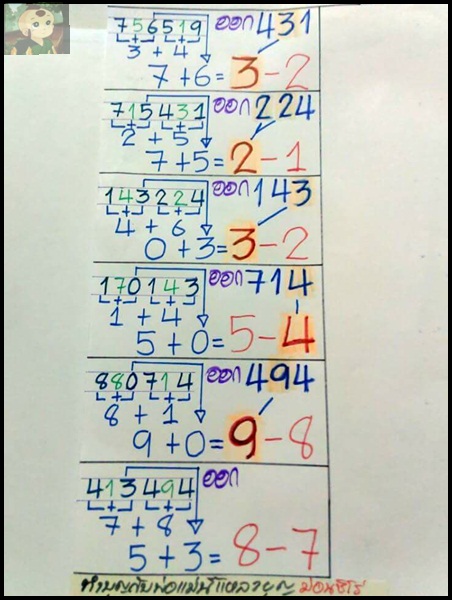 756519 ออก 431
3 + 4
7+6=3-2
715431 ออก 224
2 + 5
7+5=2-1
143224 ออก 143
4 + 6
0+3=3-2
170143 ออก 714
1 + 4
5+0=5-4
880714 ออก 494
8 + 1
9+0=9-8
413494 ออก
7 + 8
5+3=8-7